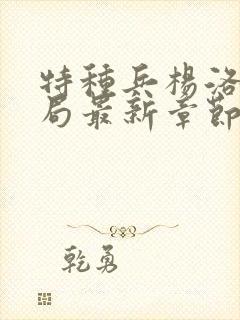 特種兵楊洛
局最新章節
乾勇